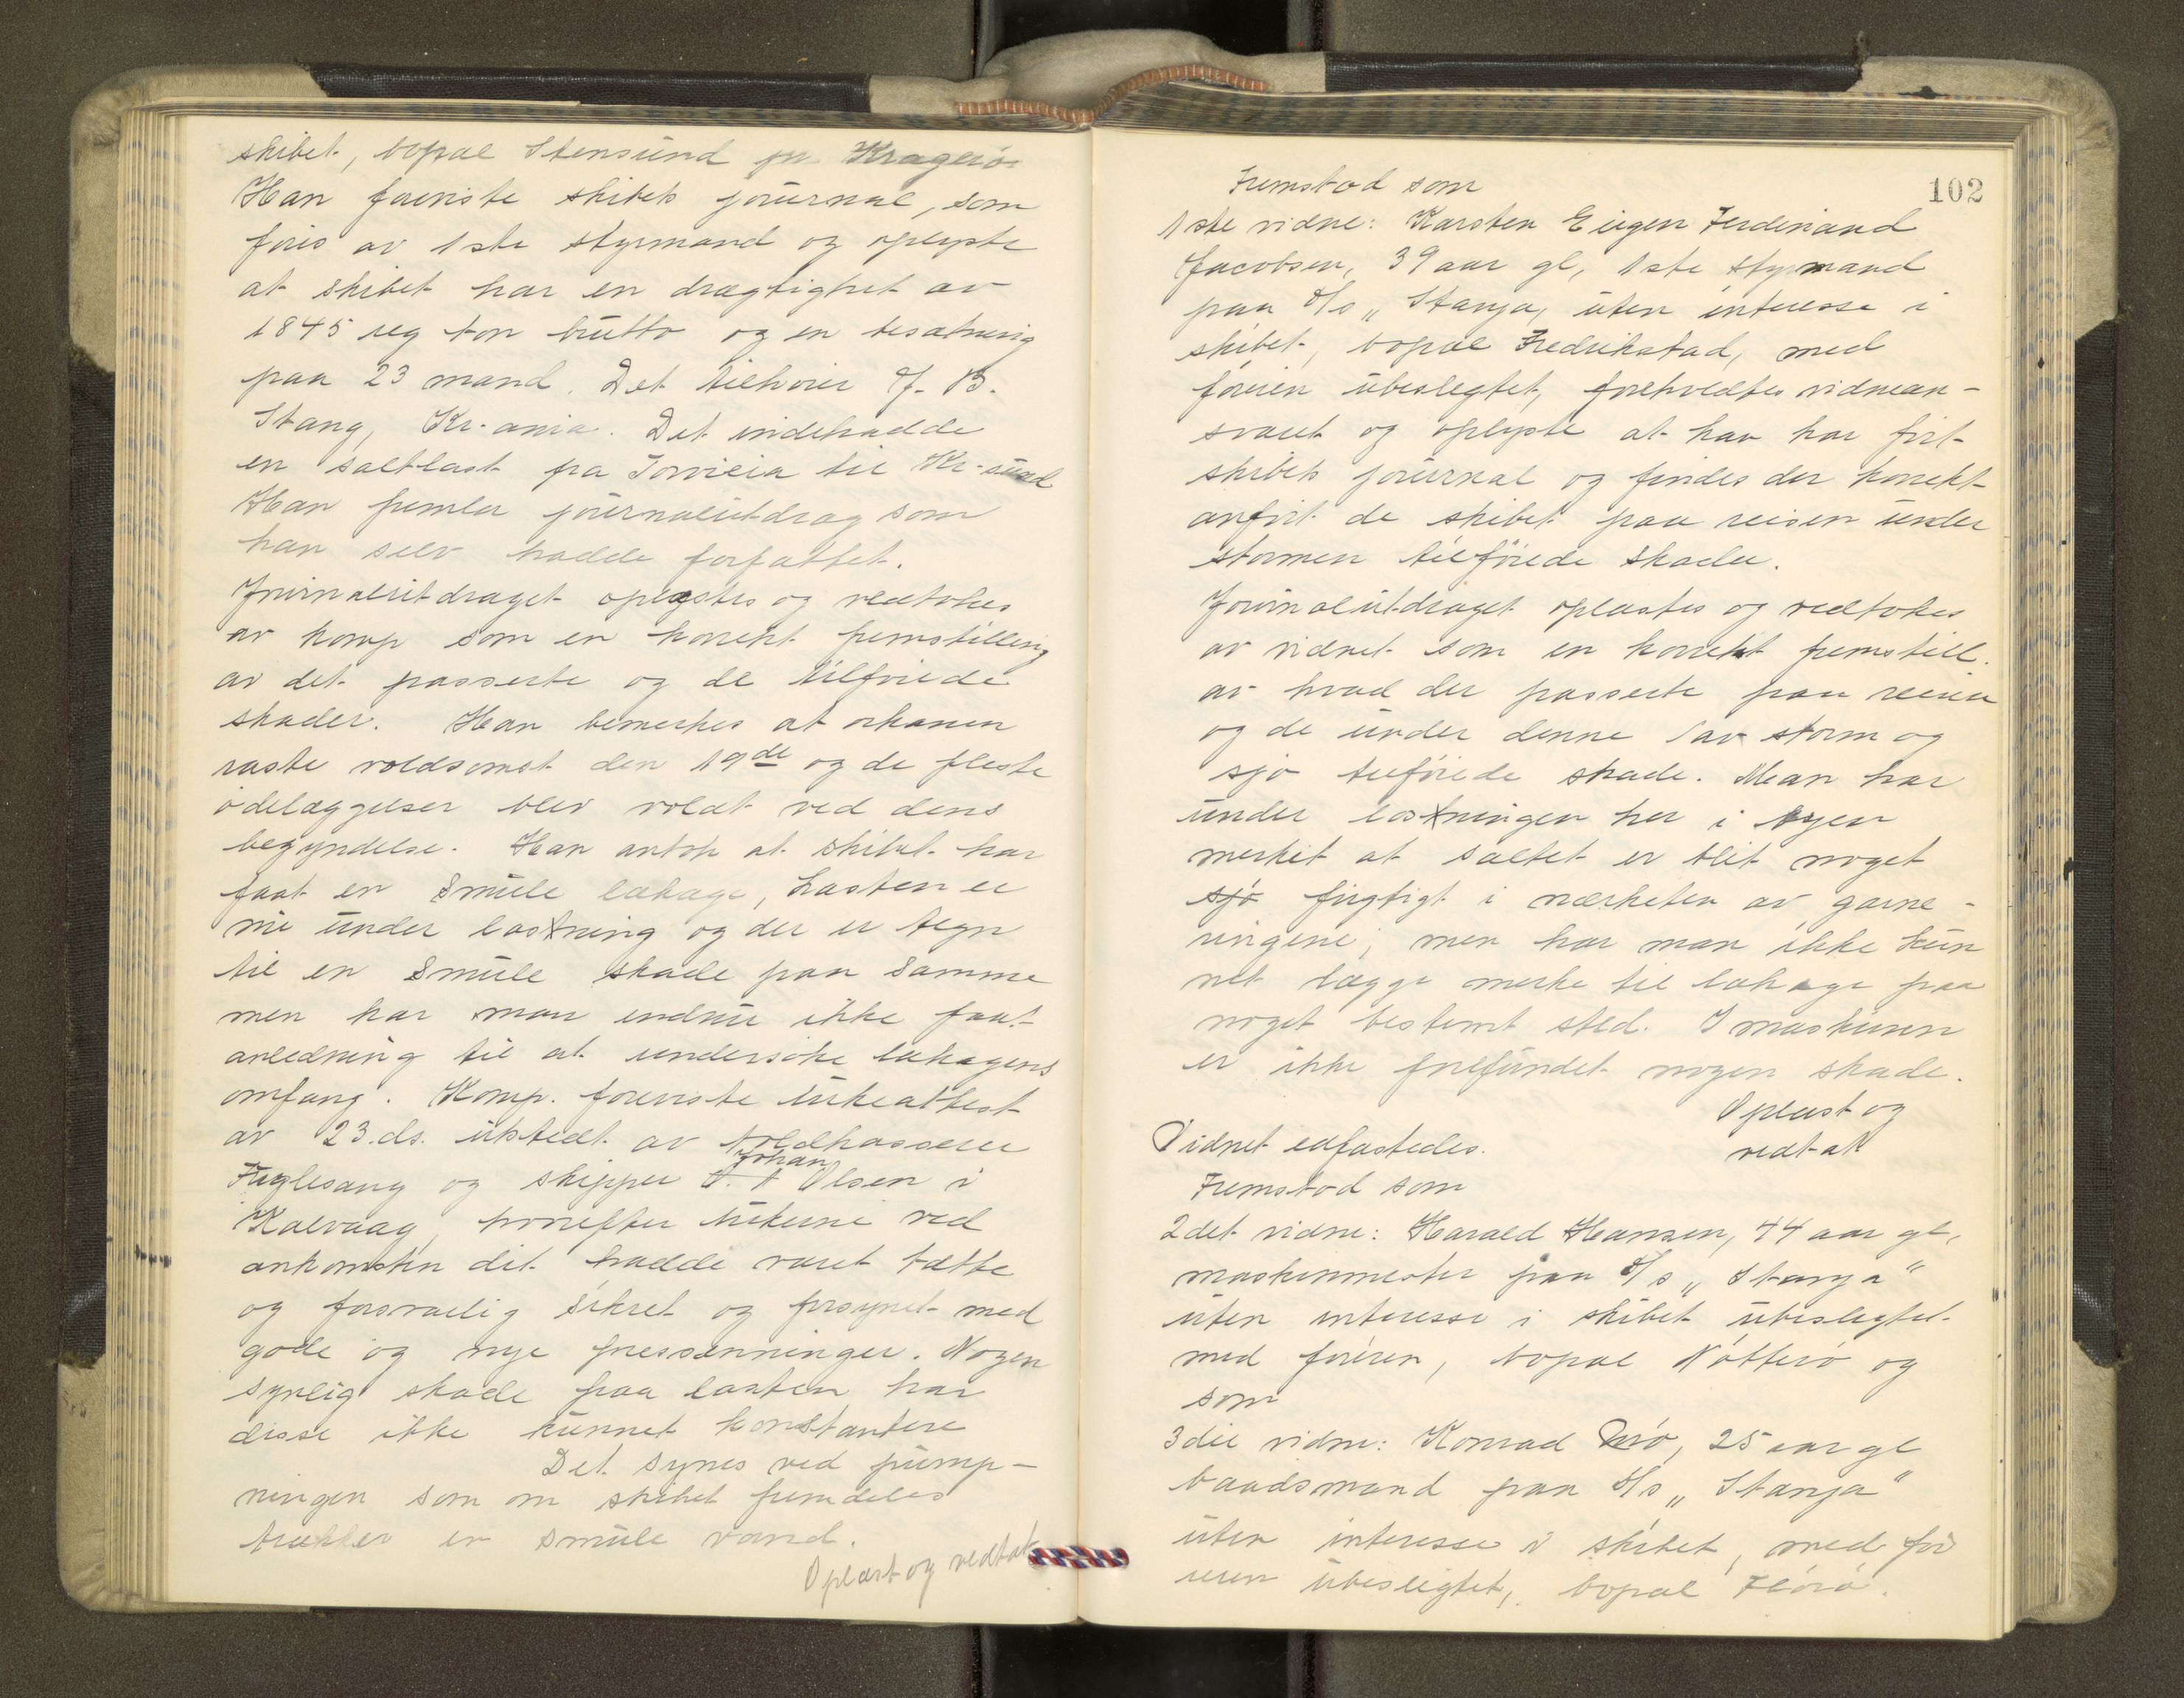 skibet, bopæl Stensund pr Kragerö
Han foreviste skibets journal, som
föres av 1ste styrmand og oplyste
at skibet har en drægtighet av
1845 reg ton brutto og en besætning
paa 23 mand. Det tilhörer J. B.
Stang, Kr-ania. Det indehadde
en saltlast fra Torrevieja til Kr-sund
Han fremla journalutdrag som
han selv hadde forfattet.
Journalutdraget oplæstes og vedtokes
av komp som en korrekt fremstilling
av det passerte og de tilföiede
skader. Han bemerkes at orkanen
raste voldsomst den 19de og de fleste
ödelæggelser blev voldt ved dens
begyndelse. Han antok at skibet har
faat en smule lækage, Lasten er
nu under losning og der er tegn
til en smule skade paa samme
men har man endnu ikke faat
anledning til at undersöke lækagens
omfang. Komp. foreviste lukeattest
av 23.ds. utstedt av toldkasserer
Fuglesang og skipper Johan A Olsen i
Kalvaag, hvorefter lukene ved
ankomsten dit hadde været tætte
og forsvarlig sikret og forsynet med
gode og nye presenninger. Nogen
synlig skade paa lasten har
disse ikke kunnet konstantere
Det synes ved pump-
ningen som om skibet fremdeles
trækker en smule vand.
Oplæst og vedtat
102
Fremstod som
1ste vidne: Karsten Eugen Ferdinand
Jacobsen, 39 aar gl, 1ste styrmand
paa S/s „Stanja, uten interesse i
skibet, bopæl Fredrikstad, med
föreren ubeslegtet, foreholdtes vidnean-
svaret og oplyste at han har fört
skibets journal og findes der korrekt
anfört de skibet paa reisen under
stormen tilföiede skader.
Journalutdraget oplæstes og vedtokes
av vidnet som en korrekt fremstill.
av hvad der passerte paa reisen
og de under denne av storm og
sjö tilföiede skade. Man har
under losningen her i byen
merket at saltet er blit noget
sjö fugtigt i nærheten av garne-
ringene, men har man ikke kun
net lægge merke til lækage paa
noget bestemt sted. I maskinen
er ikke forefundet nogen skade.
Oplæst og
vedtat
Vidnet edfæstedes.
Fremstod som
2det vidne: Harald Hansen, 44 aar gl,
maskinmester paa S/s „Stanja"
uten interesse i skibet ubeslegtet
med föreren, bopæl Nötterö og
som
3die vidne: Konrad 25 aar gl
baadsmand paa S/s „Stanja"
uten interesse i skibet, med fö
reren ubeslegtet, bopæl Florö.